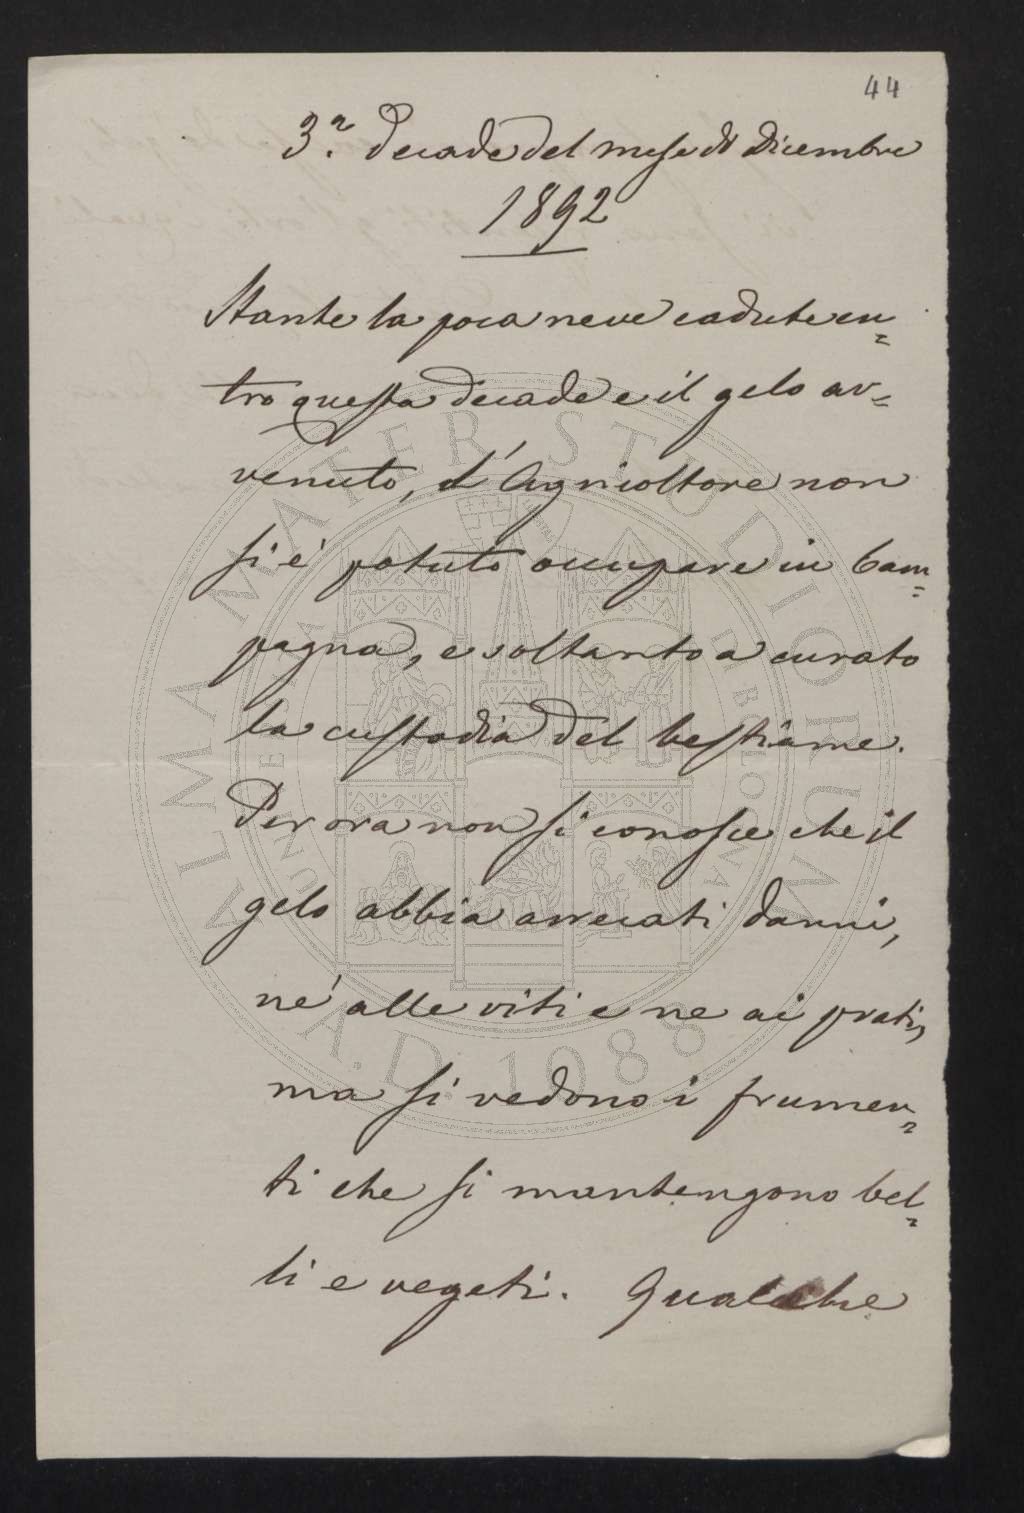 44
3.ª decade del mese di Dicembre
1892
Stante la poca neve cadute en=
tro questa decade e il gelo av=
venuto, l'Agricoltore non
si è potuto occupare in Cam=
pagna, e soltanto a curato
la custodia del bestiame.
Per ora non si conosce che il
gelo abbia arrecati danni,
ne' alle viti e ne ai prati,
ma si vedono i frumen=
ti che si mantengono bel=
li e vegeti. Qualche
ALMA MATER STUDIORUM
A.D. 1088